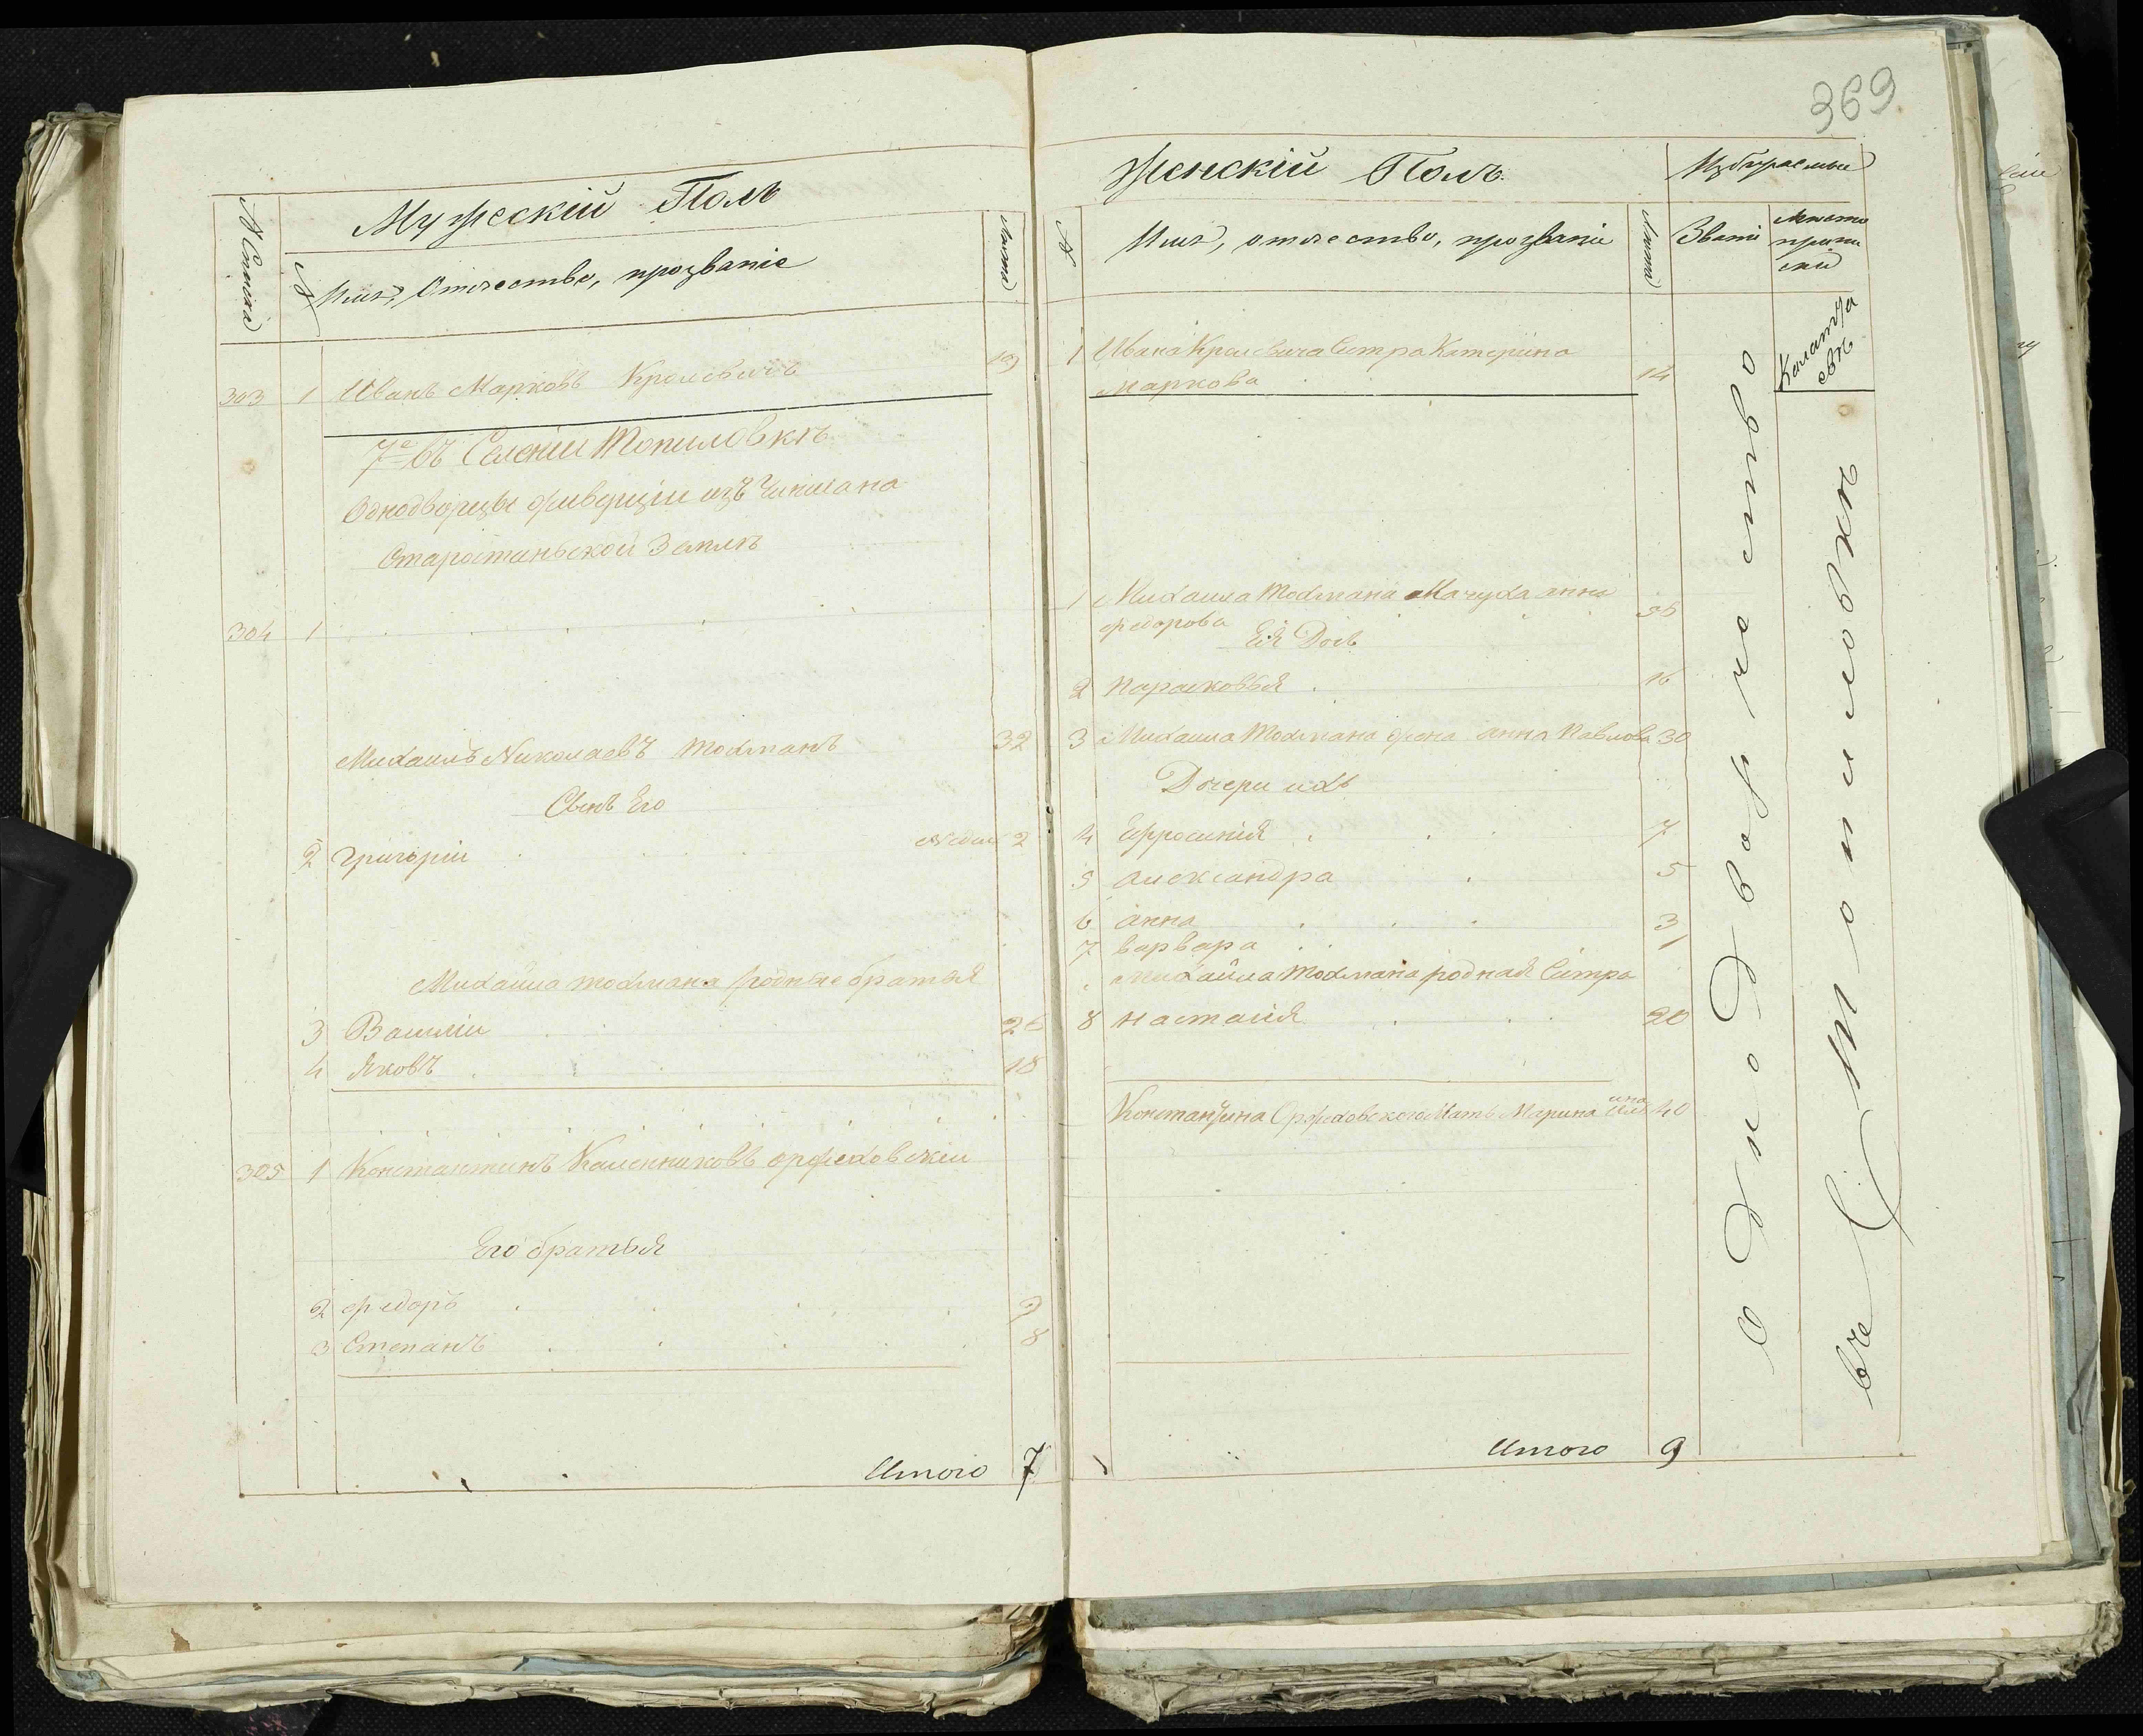 Мужескій Полъ
№ Списка
№
Имя, Отечество, прозваніе
Лѣта
303 1 Иванъ Марковъ Кролевичъ 19
7е въ Селеніи Топиловкѣ
Однодворцы
Старостинской Землѣ
304 1
Михаилъ Николаевъ Тохманъ 32
Сынъ Его
2 Григорій 2
Михайла тохмана родные братья
3 Василій 26
4 Яковъ 18
305 1 Константинъ Калениковъ оржеховскій
Его братья
2 федоръ 9
3 Степанъ 8
Итого 7
369
Женскій Полъ
Избираемые
№
Имя, отечество, прозваніе
Лѣта
Званіе
Мѣсто
припи
ски
1 Ивана Кролевича Сестра Катерина
Маркова 14
1 Михаила Тохмана Мачуха анна
федорова 36
Ея Дочь
2 парасковья 16
3 Михаила Тохмана жена анна Павлова 30
Дочери ихъ
4 Ефросинія 7
5 александра 5
6 анна 3
7 варвара 1
Михайла Тохмана родная Сестра
8 настасія 20
Константина Оржеховского Мать Марина 40
Итого 9
однодворчество
въ Топиловкѣ